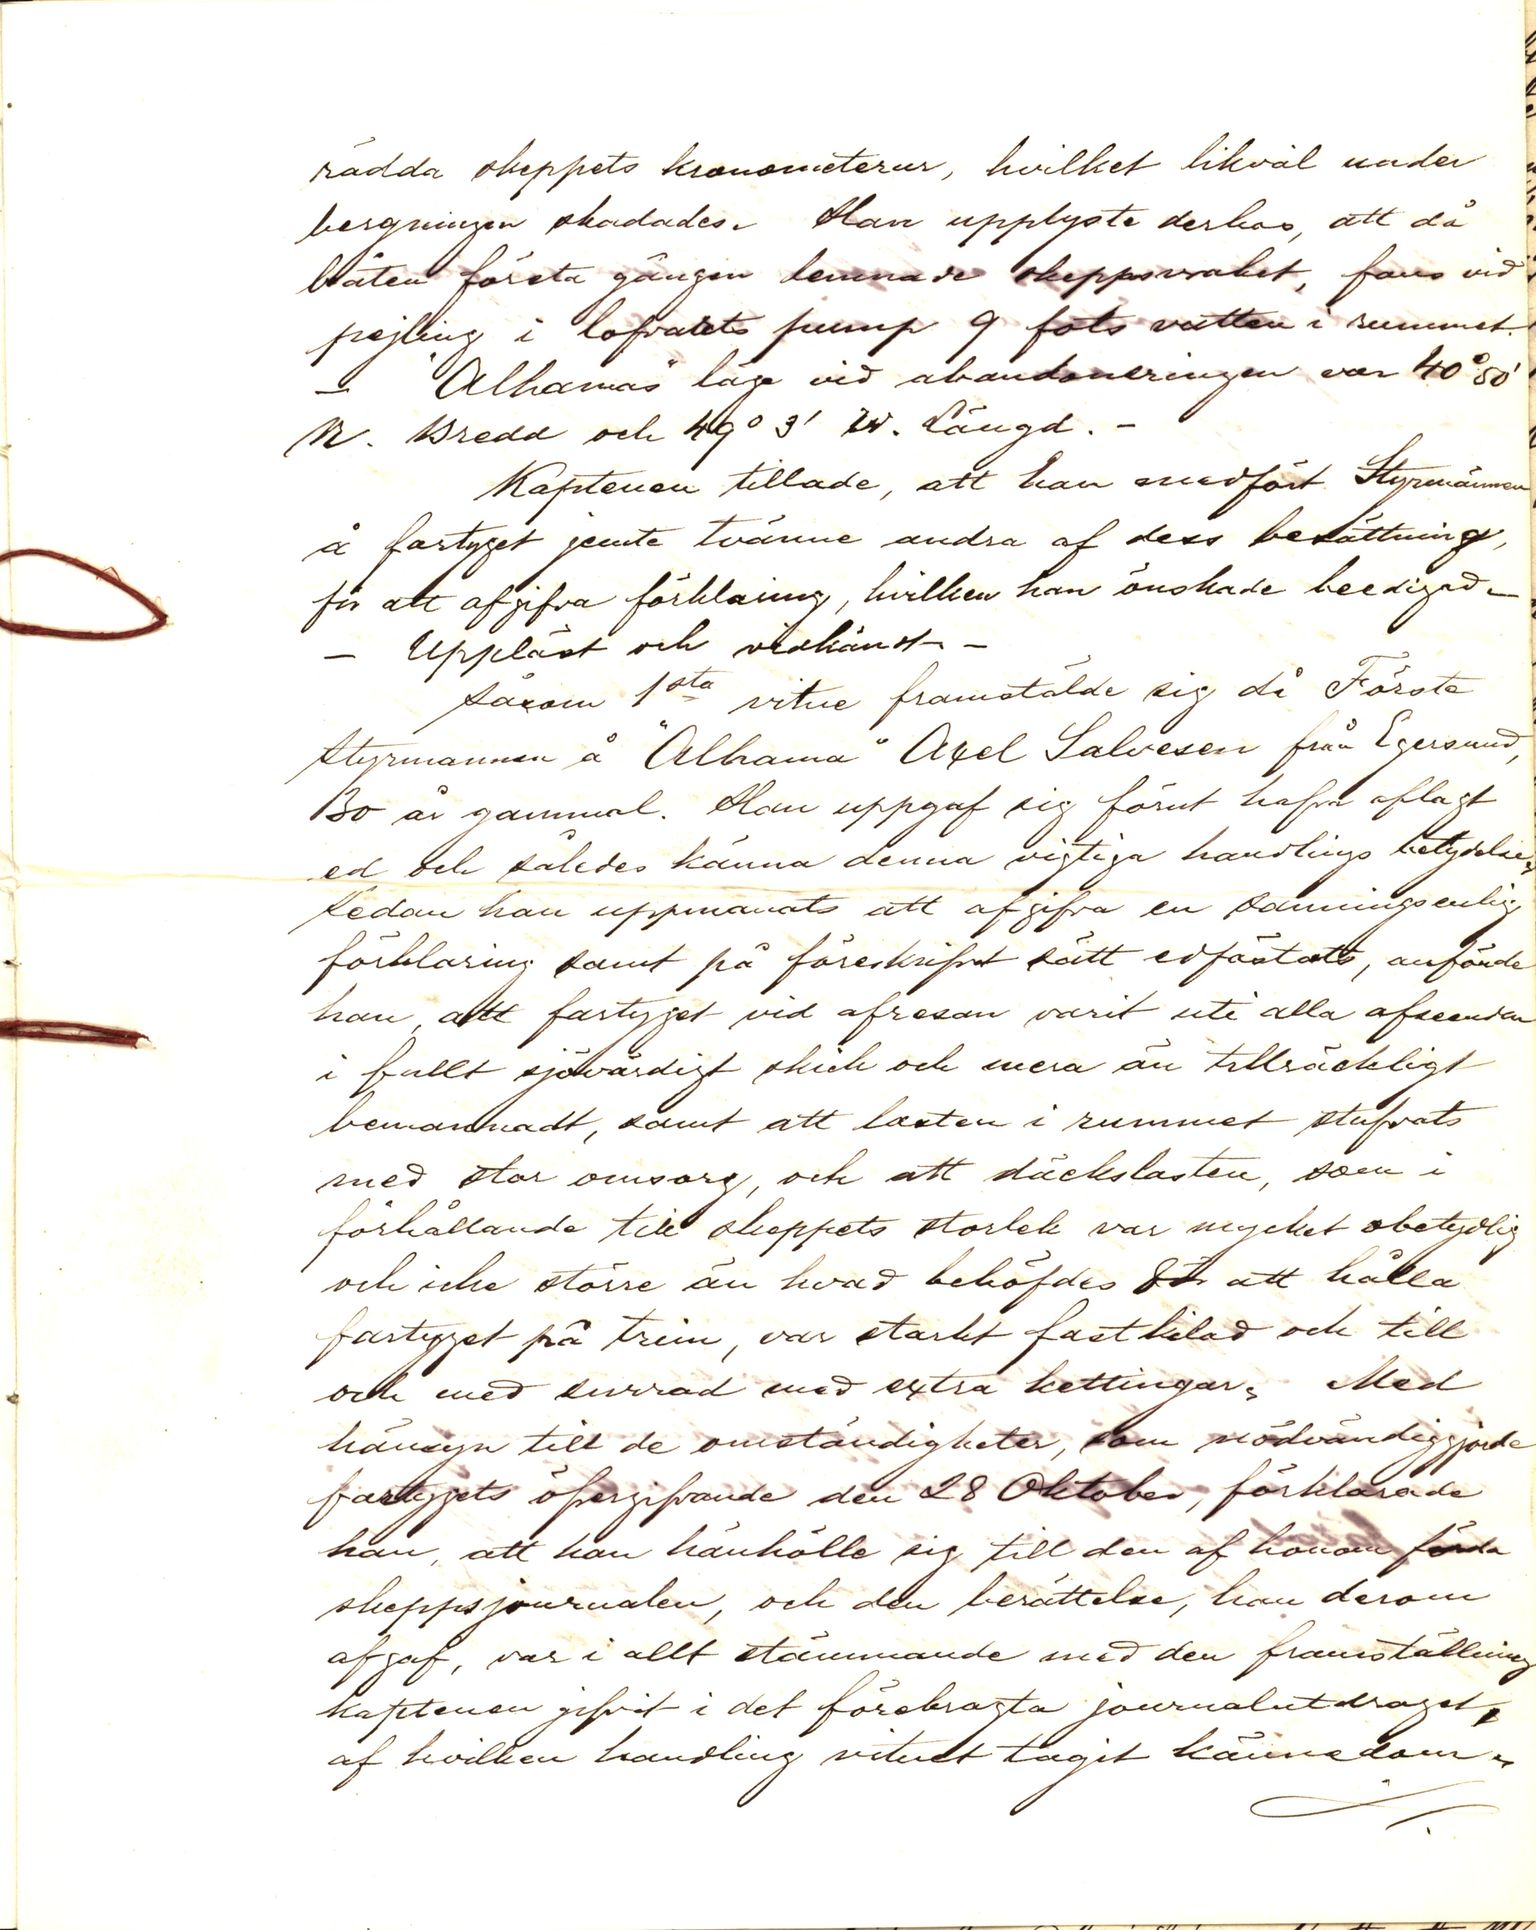 rädda skeppets kronometerur, hvilket likväl under
bergningen skadades. Han upplyste derhos, att då
båten första gången lemnade skeppsvraket, fans vid
pejling i lofvarts pump 9 fots vatten i rummet.
— "Alhamas" läge vid abandoneringen var 40° 50'
N. Bredd och 49° 3' W. Längd. —
Kaptenen tillade, att han medfört Styrmännen
å fartyget jemte tvänne andra af dess besättning,
för att afgifva förklaring, hvilken han önskade beedigad. —
— Uppläst och vidkänst. —
Såsom 1sta vitne framstälde sig då Förste
Styrmannen å "Alhama" Axel Salvesen från Egersund,
30 år gammal. Han uppgaf sig förut hafva aflagt
ed och således känna denna vigtiga handlings betydelse.
Sedan han uppmanats att afgifva en sanningsenlig
förklaring samt på föreskrifvet sätt edfästats, anförde
han, att fartyget vid afresan varit uti alla afseenden
i fullt sjövärdigt skick och mera än tillräckligt
bemannadt, samt att lasten i rummet stufvats
med stor omsorg, och att däckslasten, som i
förhållande till skeppets storlek var mycket obetydlig
och icke större än hvad behöfdes för att hålla
fartyget på trim, var starkt fastkilad och till
och med surrad med extra kettingar. Med
hänsyn till de omständigheter, som nödvändiggjorde
fartygets öfvergifvande den 28 Oktober, förklarade
han, att han hänhölle sig till den af honom förda
skeppsjournalen, och den berättelse, han derom
afgaf, var i allt stämmande med den framställning
kaptenen gifvit i det förebragta journalutdraget,
af hvilken handling vitnet tagit kännedom.